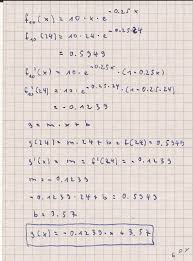 f₁₀(x) = 10·x·e^-0.25x
f₁₀(24) = 10·24·e^-0.25·24
= 0.5949
f₁₀'(x) = 10·e^-0.25x·(1-0.25x)
f₁₀'(24) = 10·e^-0.25·24·(1-0.25·24)
= -0.1239
y = m·x+b
g(24) = m·24+b = f(24) = 0.5949
g'(x) = m = f'(24) = -0.1239
m = -0.1239
-0.1239·24+b = 0.5949
b = 3.57
g(x) = -0.1239·x+3.57